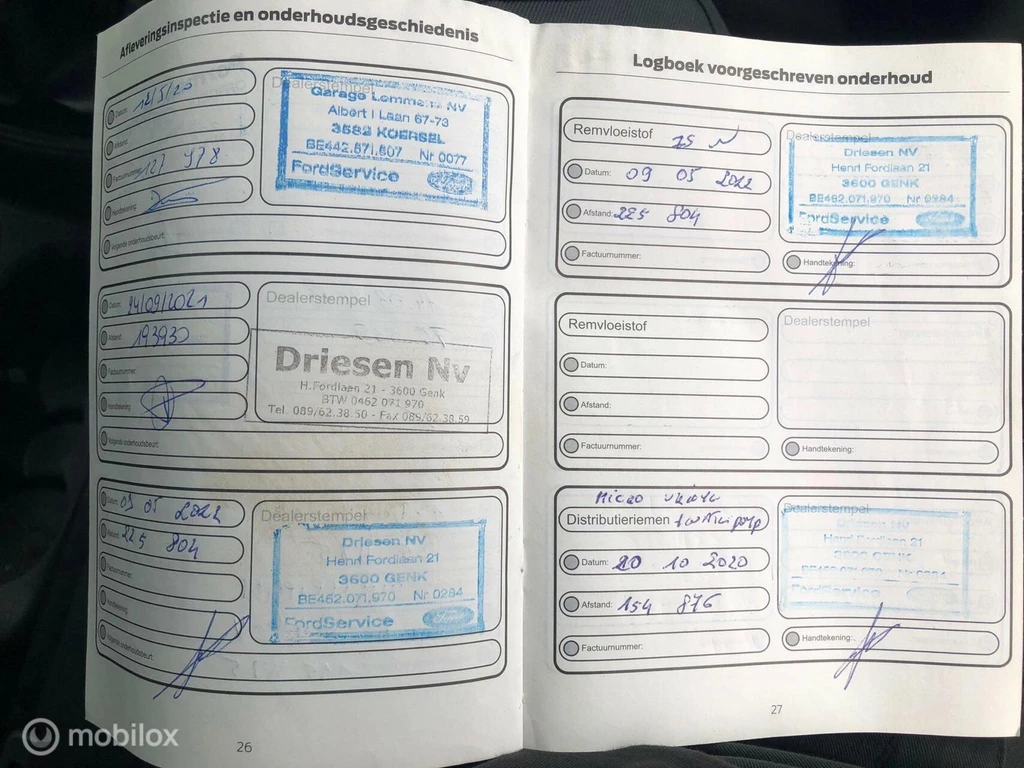 Afleveringsinspectie en onderhoudsgeschiedenis
Datum: 12/5/20
Afstand:
Factuurnummer: 127 978
Handtekening:
Volgende onderhoudsbeurt:
Dealerstempel
Garage Lommens NV
Albert I Laan 67-73
3582 KOERSEL
BE442.671.607 Nr 0077
FordService
Ford
Datum: 24/09/2021
Afstand: 193930
Factuurnummer:
Handtekening:
Volgende onderhoudsbeurt:
Dealerstempel
Driesen Nv
H.Fordlaan 21 - 3600 Genk
BTW 0462 071 970
Tel. 089/62.38.50 - Fax 089/62.38.59
Datum: 09 05 2022
Afstand: 225 804
Factuurnummer:
Handtekening:
Volgende onderhoudsbeurt:
Dealerstempel
Driesen NV
Henri Fordlaan 21
3600 GENK
BE462.071.970 Nr 0284
FordService
Ford
26
Logboek voorgeschreven onderhoud
Remvloeistof
Datum: 09 05 2022
Afstand: 225 804
Factuurnummer:
Dealerstempel
Driesen NV
Henri Fordlaan 21
3600 GENK
BE462.071.970 Nr 0284
FordService
Handtekening:
Remvloeistof
Datum:
Afstand:
Factuurnummer:
Dealerstempel
Handtekening:
Micro
Distributieriemen
Datum: 20 10 2020
Afstand: 154 876
Factuurnummer:
Dealerstempel
Driesen NV
Henri Fordlaan 21
3600 GENK
BE462.071.970 Nr 0284
FordService
Handtekening:
27
mobilox